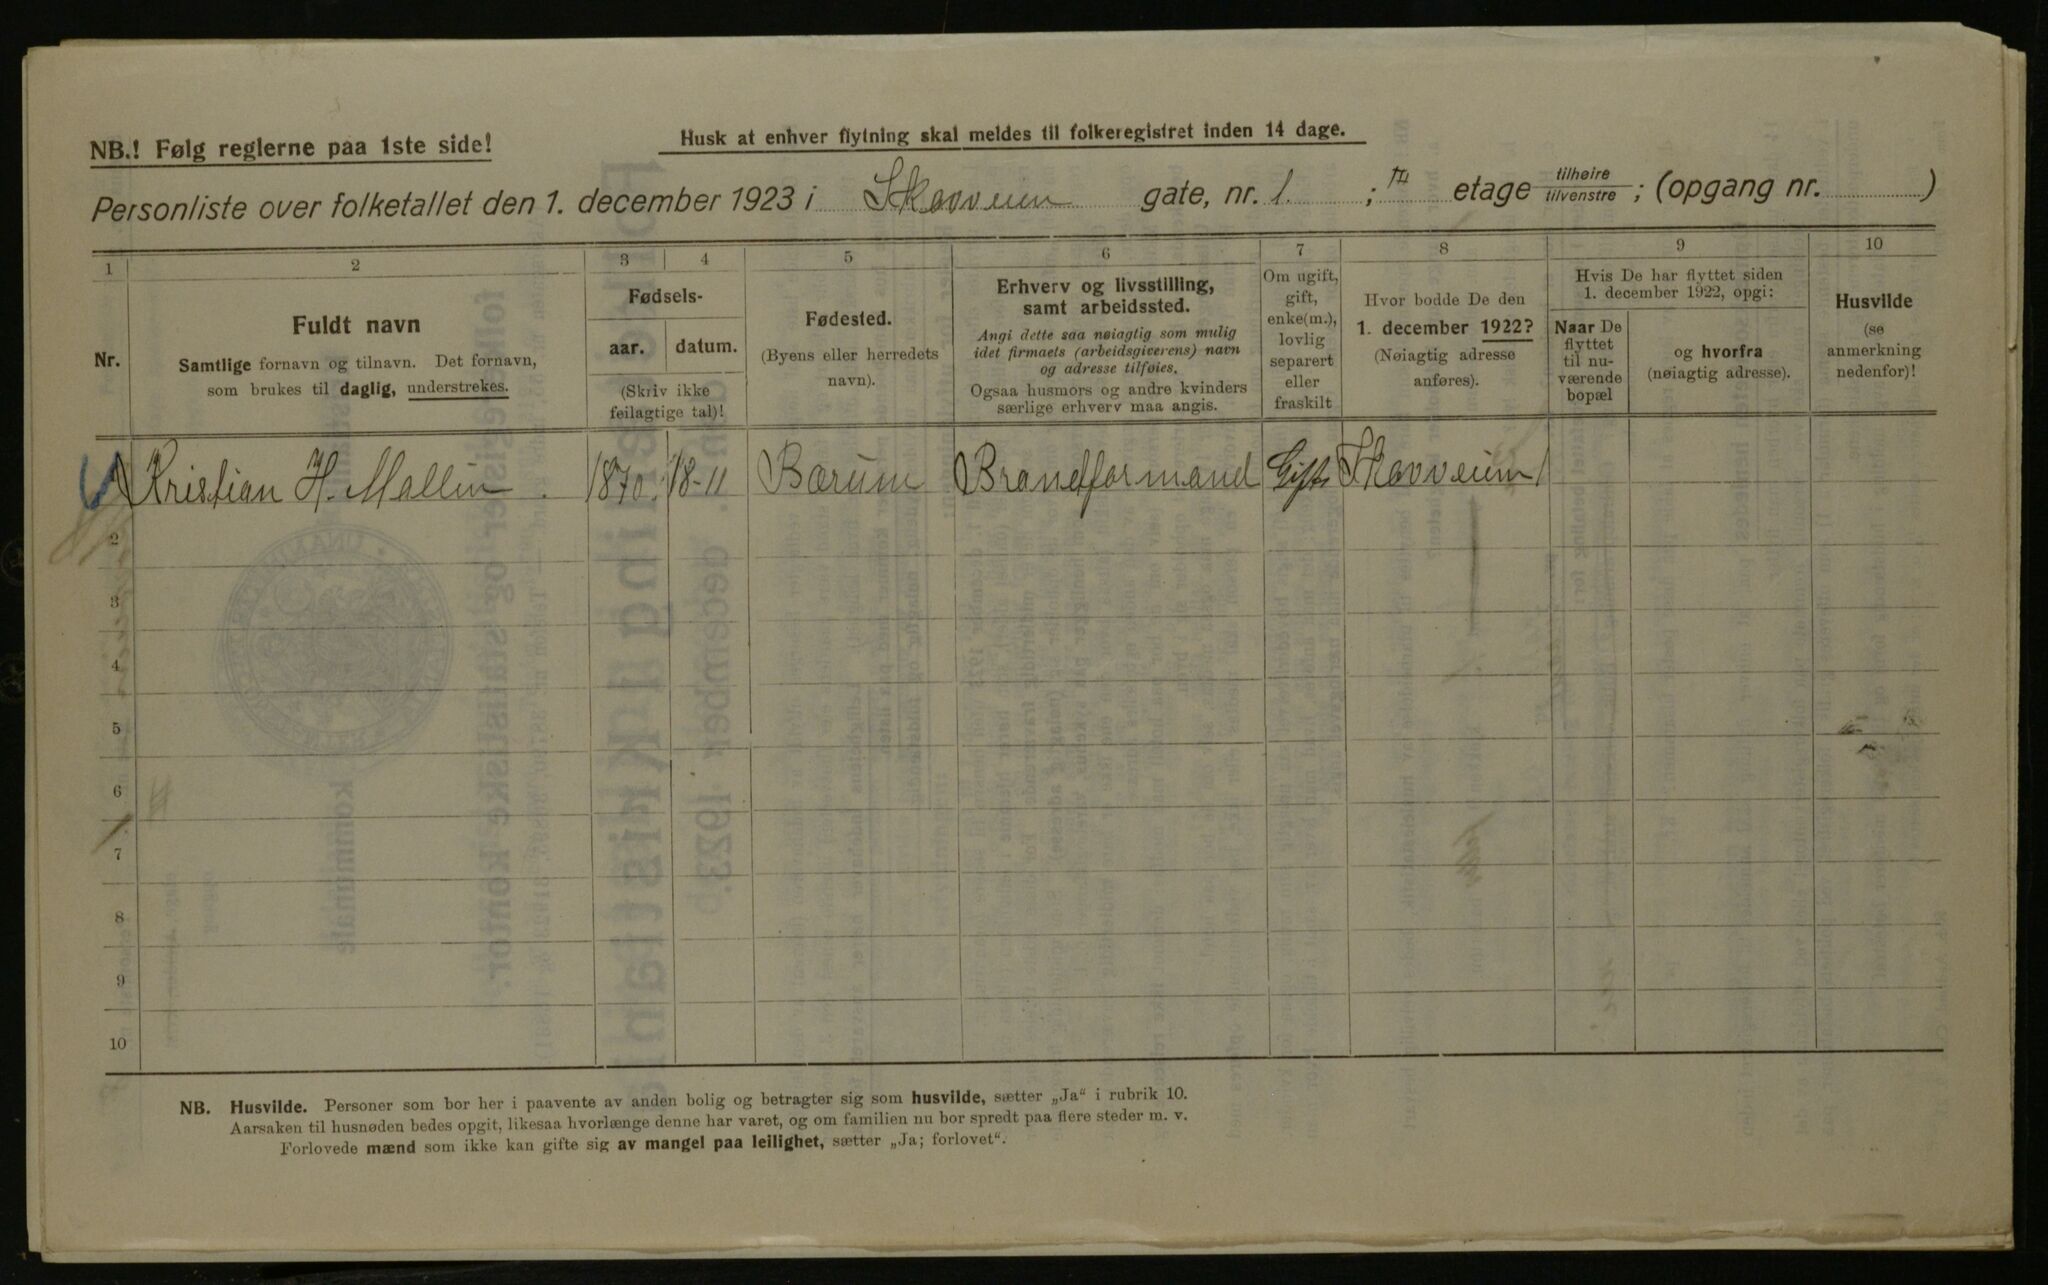 NB.! Følg reglerne paa 1ste side!
Husk at enhver flytning skal meldes til folkeregistret inden 14 dage.
Personliste over folketallet den 1. december 1923 i Skovveien gate, nr. 1. ; III etage tilhøire/tilvenstre ; (opgang nr. )
1 2 3 4 5 6 7 8 9 10
Nr.
Fuldt navn
Samtlige fornavn og tilnavn. Det fornavn,
som brukes til daglig, understrekes.
Fødsels-
aar. datum.
(Skriv ikke
feilagtige tal)!
Fødested.
(Byens eller herredets
navn).
Erhverv og livsstilling,
samt arbeidssted.
Angi dette saa nøiagtig som mulig
idet firmaets (arbeidsgiverens) navn
og adresse tilføies.
Ogsaa husmors og andre kvinders
særlige erhverv maa angis.
Om ugift,
gift,
enke(m.),
lovlig
separert
eller
fraskilt
Hvor bodde De den
1. december 1922?
(Nøiagtig adresse
anføres).
Hvis De har flyttet siden
1. december 1922, opgi:
Naar De
flyttet
til nu-
værende
bopæl
og hvorfra
(nøiagtig adresse).
Husvilde
(se
anmerkning
nedenfor)!
Kristian H. Mallin. 1870. 18-11 Bærum Brandformand Gift Skovveien 1
2
3
4
5
6
7
8
9
10
NB. Husvilde. Personer som bor her i paavente av anden bolig og betragter sig som husvilde, sætter „Ja“ i rubrik 10.
Aarsaken til husnøden bedes opgit, likesaa hvorlænge denne har varet, og om familien nu bor spredt paa flere steder m. v.
Forlovede mænd som ikke kan gifte sig av mangel paa leilighet, sætter „Ja; forlovet“.